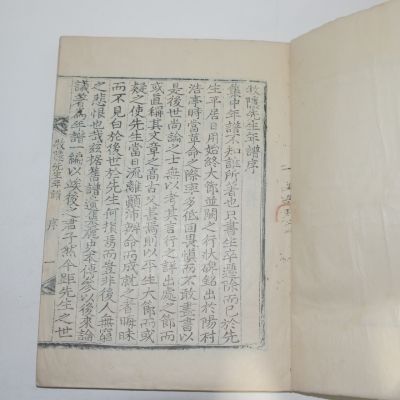 牧隱先生年譜序
集中年譜不知誰所著也只書生卒遷除而已於先
生平居日用始終大節並闕之行狀碑銘出於陽村
浩亭時當革命之際率多低囬畏愼而不敢盡書以
是後世尚論之士無以考其言行之詳出處之節而
或直稱其文章之高古又甚焉則以平生大節而或
疑之使先生當日流離顚沛殞命而成就之者晦昧
而不見白於後世於先生何損焉而豈非後人無窮
之悲恨也哉玆据舊譜遺集麗史本傳參以後來論
議著爲年譜一編以竢後之君子然今距先生之世
牧隱先生年譜 序 一